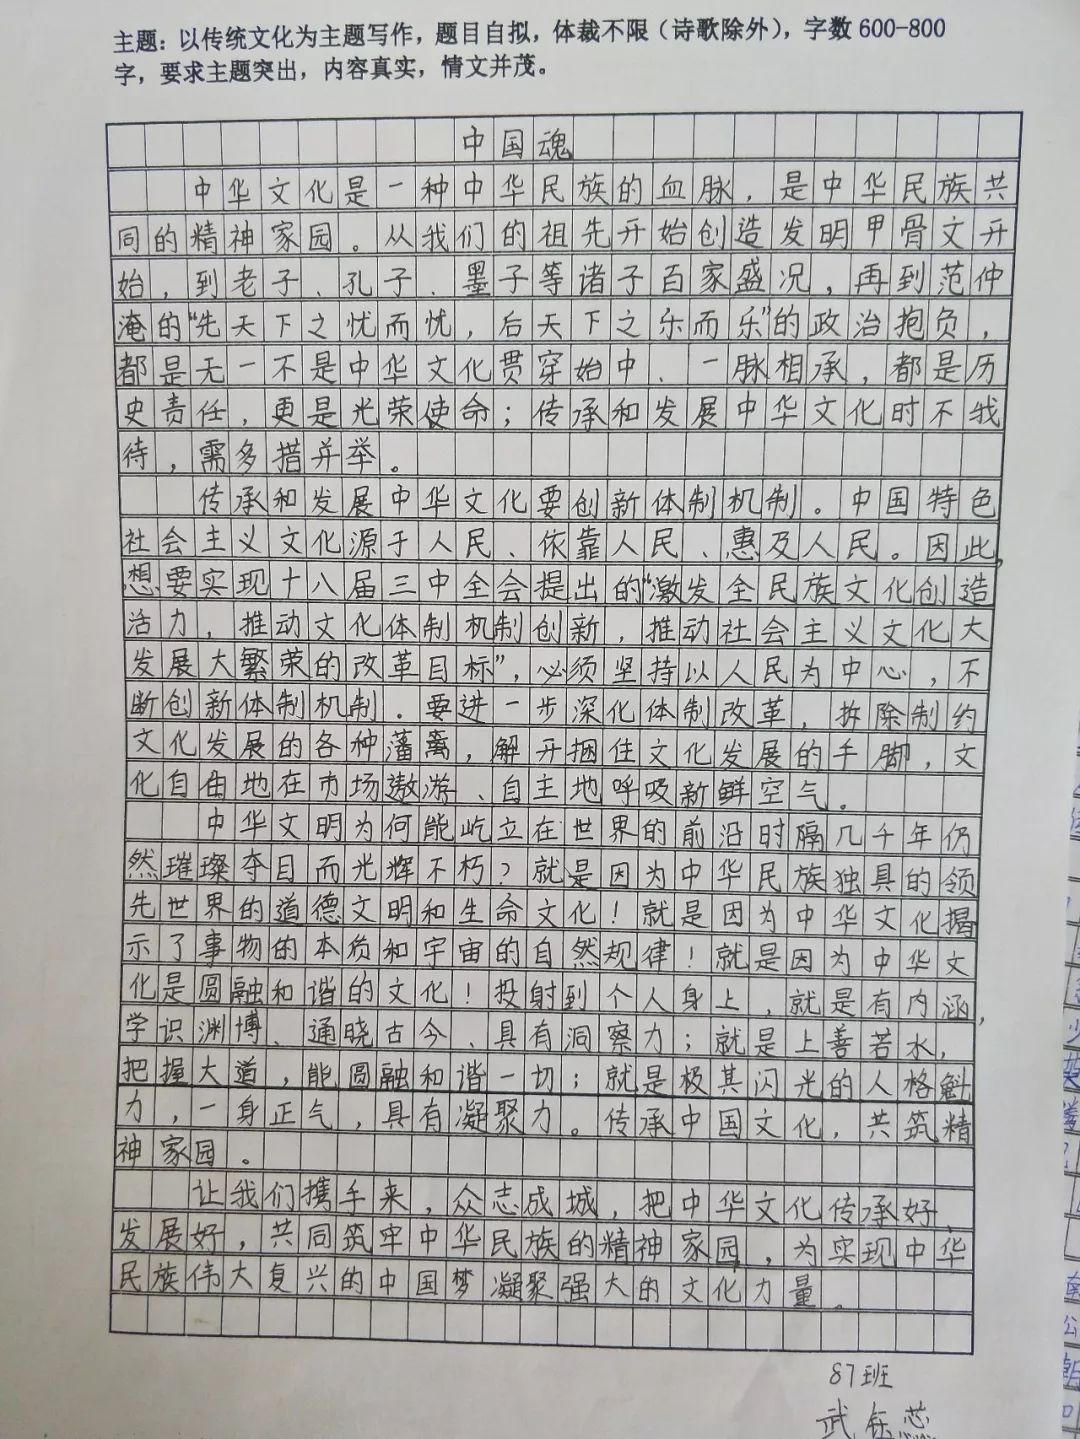 主题：以传统文化为主题写作，题目自拟，体裁不限（诗歌除外），字数600-800
字，要求主题突出，内容真实，情文并茂。
中国魂
中华文化是一种中华民族的血脉，是中华民族共
同的精神家园。从我们的祖先开始创造发明甲骨文开
始，到老子、孔子、墨子等诸子百家盛况，再到范仲
淹的“先天下之忧而忧，后天下之乐而乐”的政治抱负，
都是无一不是中华文化贯穿始中、一脉相承，都是历
史责任，更是光荣使命；传承和发展中华文化时不我
待，需多措并举。
传承和发展中华文化要创新体制机制。中国特色
社会主义文化源于人民、依靠人民、惠及人民。因此，
想要实现十八届三中全会提出的“激发全民族文化创造
活力，推动文化体制机制创新，推动社会主义文化大
发展大繁荣的改革目标”，必须坚持以人民为中心，不
断创新体制机制．要进一步深化体制改革，拆除制约
文化发展的各种藩离，解开捆住文化发展的手脚，文
化自由地在市场遨游、自主地呼吸新鲜空气。
中华文明为何能屹立在世界的前沿时隔几千年仍
然璀璨夺目而光辉不朽？就是因为中华民族独具的领
先世界的道德文明和生命文化！就是因为中华文化揭
示了事物的本质和宇宙的自然规律！就是因为中华文
化是圆融和谐的文化！投射到个人身上，就是有内涵，
学识渊博、通晓古今、具有洞察力；就是上善若水，
把握大道，能圆融和谐一切；就是极其闪光的人格魁
力，一身正气，具有凝聚力。传承中国文化，共筑精
神家园。
让我们携手来，众志成城，把中华文化传承好、
发展好，共同筑牢中华民族的精神家园，为实现中华
民族伟大复兴的中国梦凝聚强大的文化力量。
87班
武钰蕊